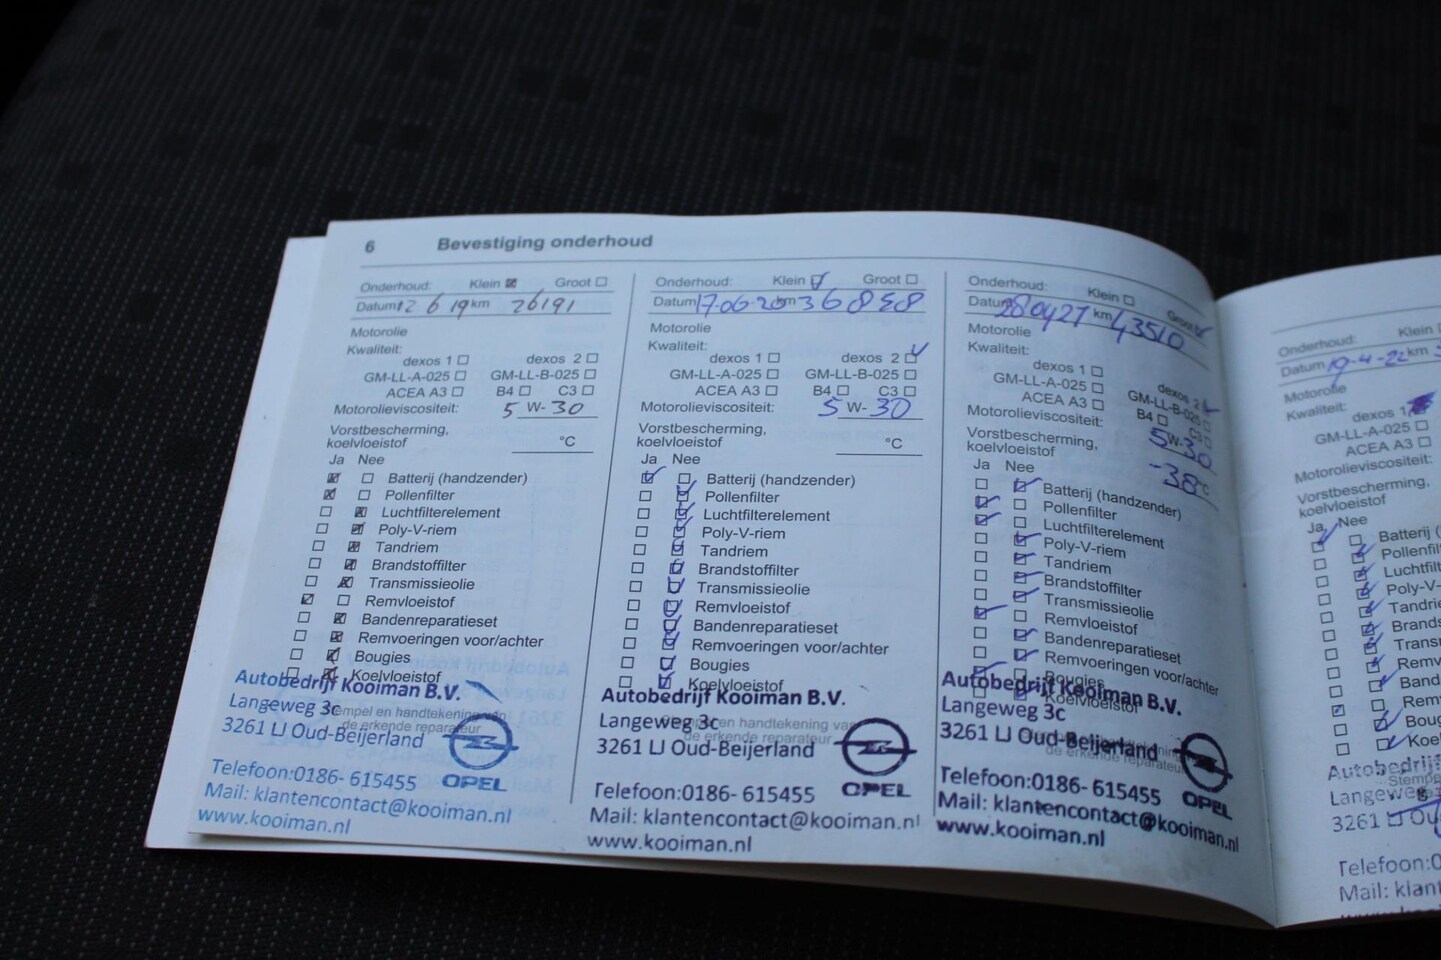 6 Bevestiging onderhoud
Onderhoud: Klein Groot
Datum 12 6 19 km 26191
Motorolie
Kwaliteit:
dexos 1 dexos 2
GM-LL-A-025 GM-LL-B-025
ACEA A3 B4 C3
Motorolieviscositeit: 5 W- 30
Vorstbescherming,
koelvloeistof °C
Ja Nee
Batterij (handzender)
Pollenfilter
Luchtfilterelement
Poly-V-riem
Tandriem
Brandstoffilter
Transmissieolie
Remvloeistof
Bandenreparatieset
Remvoeringen voor/achter
Bougies
Koelvloeistof
Autobedrijf Kooiman B.V.
Langeweg 3c
Stempel en handtekening van
de erkende reparateur
3261 LJ Oud-Beijerland
OPEL
Telefoon:0186- 615455
Mail: klantencontact@kooiman.nl
www.kooiman.nl
Onderhoud: Klein Groot
Datum 17-06-20 km 36858
Motorolie
Kwaliteit:
dexos 1 dexos 2
GM-LL-A-025 GM-LL-B-025
ACEA A3 B4 C3
Motorolieviscositeit: 5 W- 30
Vorstbescherming,
koelvloeistof °C
Ja Nee
Batterij (handzender)
Pollenfilter
Luchtfilterelement
Poly-V-riem
Tandriem
Brandstoffilter
Transmissieolie
Remvloeistof
Bandenreparatieset
Remvoeringen voor/achter
Bougies
Koelvloeistof
Autobedrijf Kooiman B.V.
Langeweg 3c
Stempel en handtekening van
de erkende reparateur
3261 LJ Oud-Beijerland
OPEL
Telefoon:0186- 615455
Mail: klantencontact@kooiman.nl
www.kooiman.nl
Onderhoud: Klein Groot
Datum 280421 km 43510
Motorolie
Kwaliteit:
dexos 1 dexos 2
GM-LL-A-025 GM-LL-B-025
ACEA A3 B4 C3
Motorolieviscositeit: 5 W- 30
Vorstbescherming,
koelvloeistof -38 °C
Ja Nee
Batterij (handzender)
Pollenfilter
Luchtfilterelement
Poly-V-riem
Tandriem
Brandstoffilter
Transmissieolie
Remvloeistof
Bandenreparatieset
Remvoeringen voor/achter
Bougies
Koelvloeistof
Autobedrijf Kooiman B.V.
Langeweg 3c
3261 LJ Oud-Beijerland
de erkende reparateur
OPEL
Telefoon:0186- 615455
Mail: klantencontact@kooiman.nl
www.kooiman.nl
Onderhoud: Klein
Datum 19-4-22 km
Motorolie
Kwaliteit:
dexos 1
GM-LL-A-025
ACEA A3
Motorolieviscositeit:
Vorstbescherming,
koelvloeistof
Ja Nee
Batterij (
Pollenfil
Luchtfilt
Poly-V-
Tandrie
Brands
Transm
Remv
Band
Rem
Boug
Koel
Autobedrijf
Langeweg
Stempe
3261 LJ Ou
Telefoon:0
Mail: klant